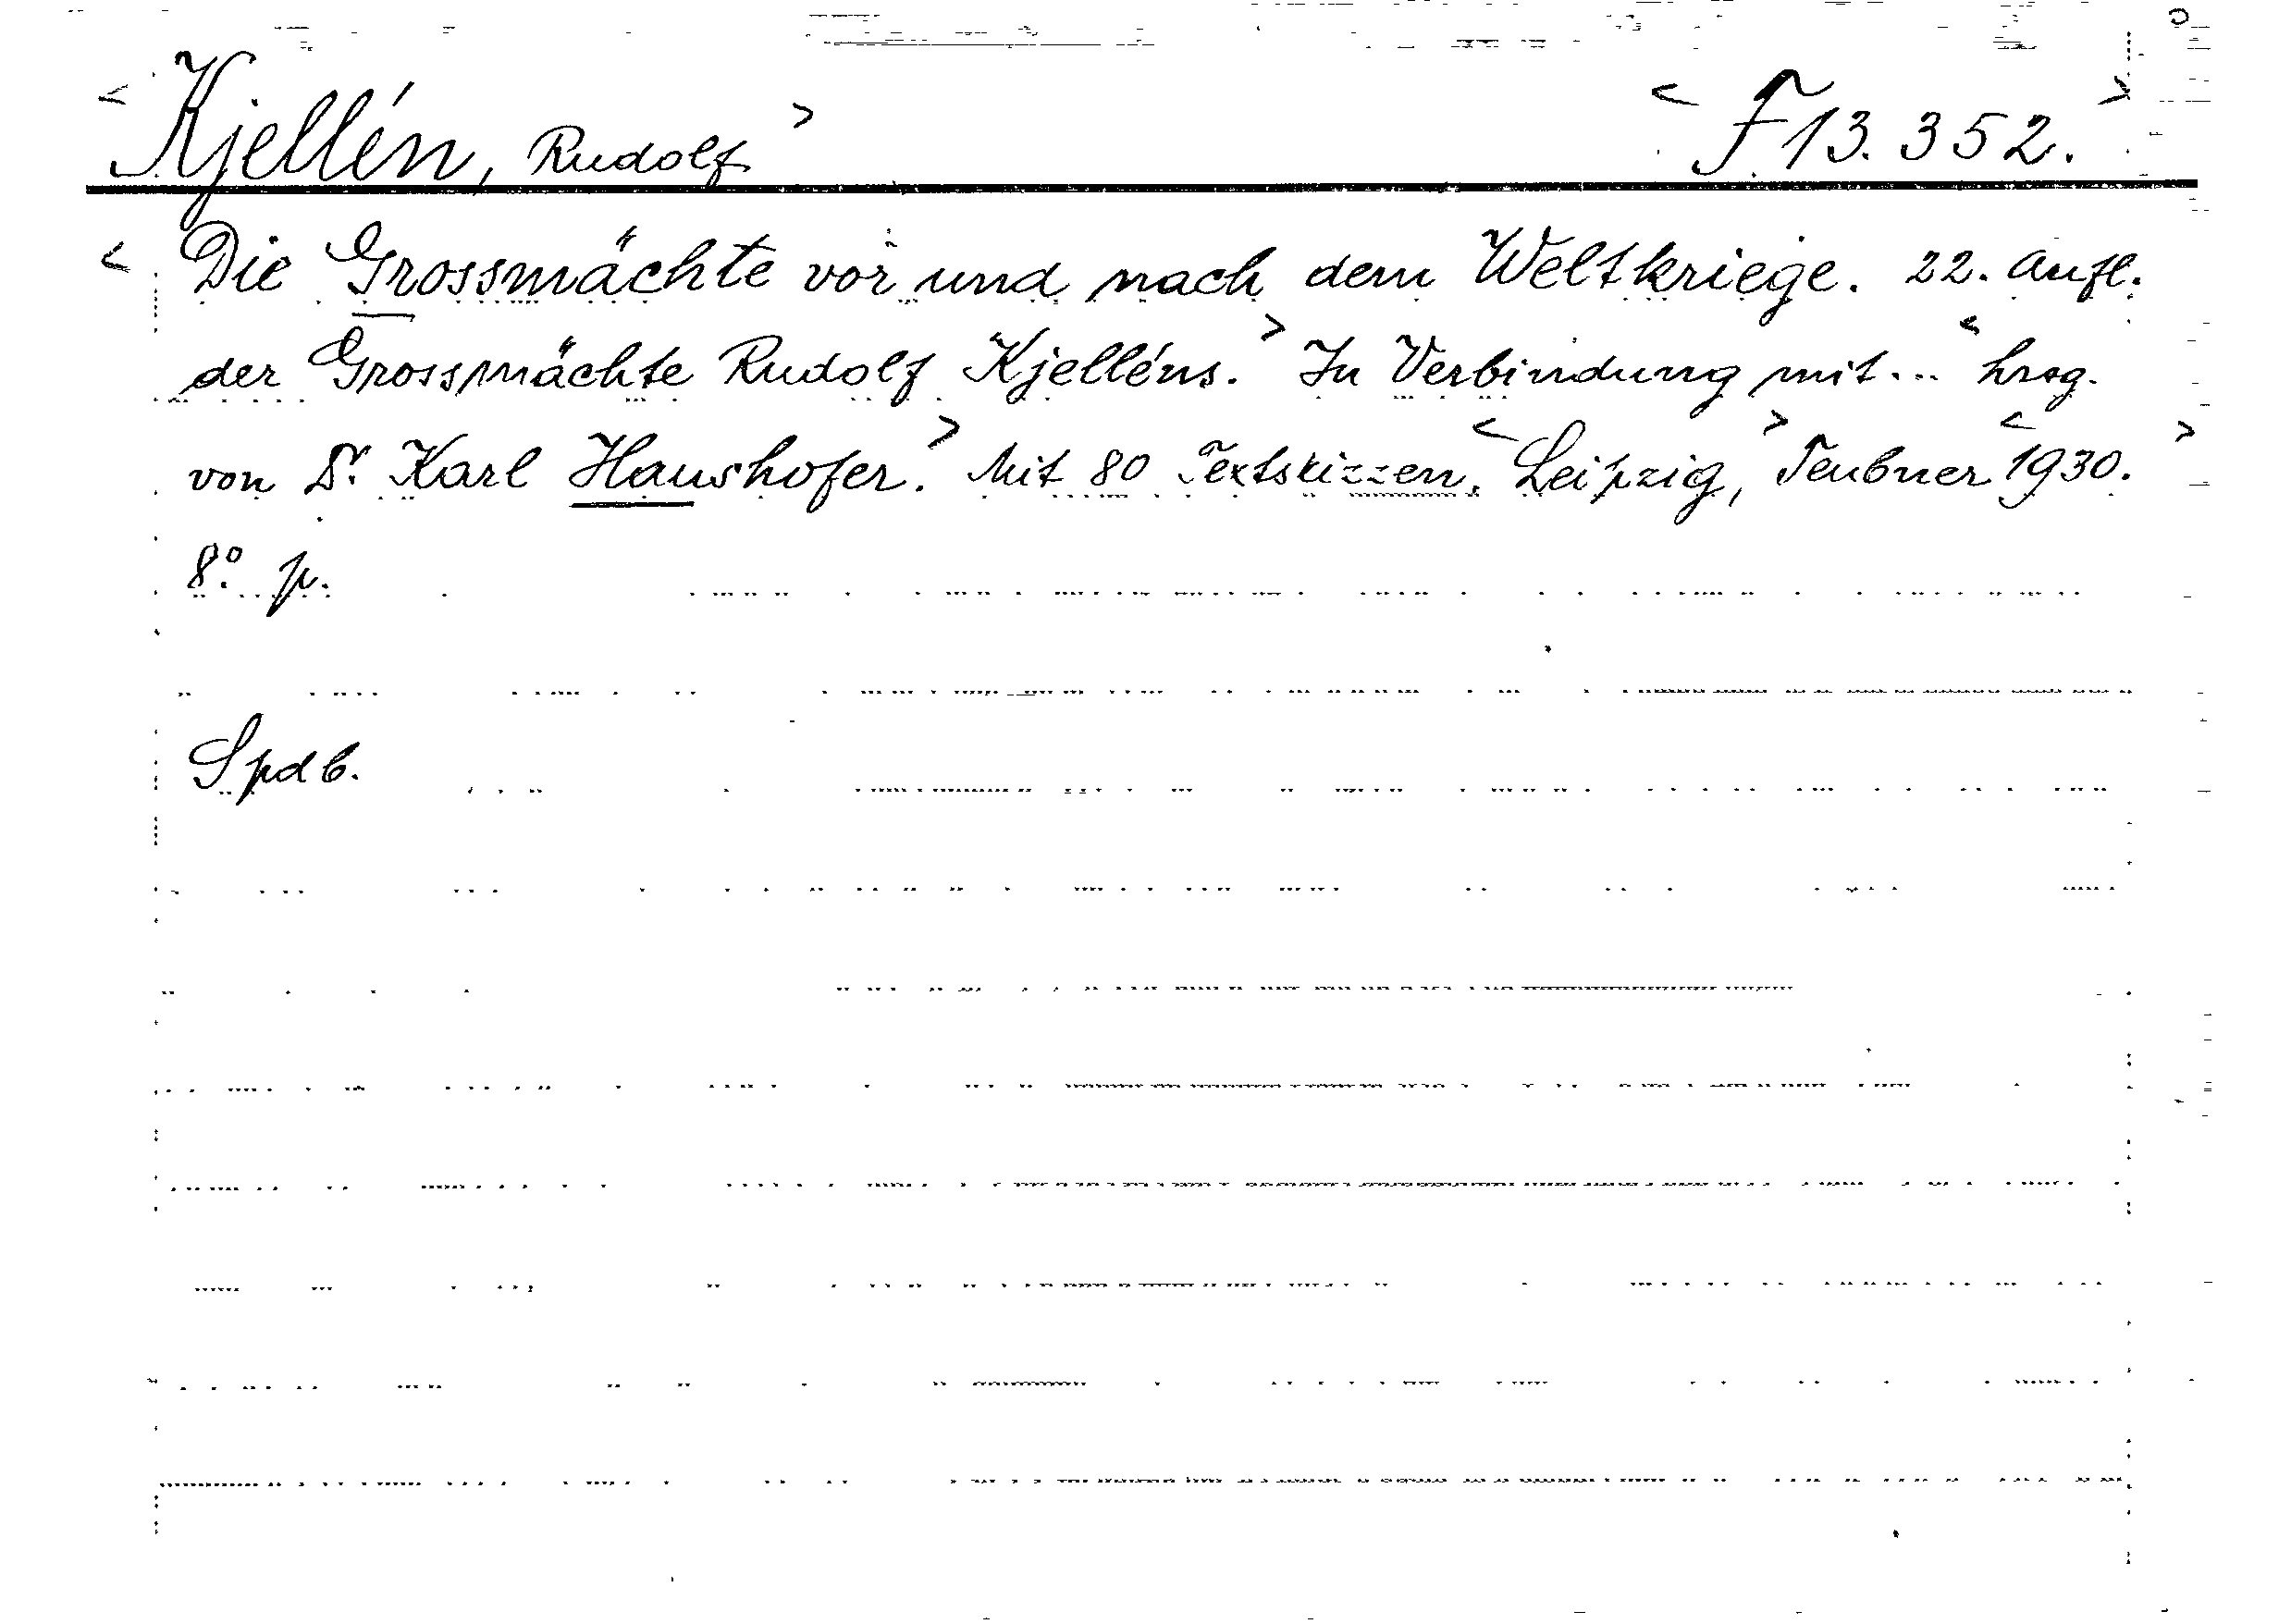 < Kjellén, Rudolf > < F 13.352. >
< Die Grossmächte vor und nach dem Weltkriege. 22. Aufl.
der Grossmächte Rudolf Kjelléns. > In Verbindung mit... < hrsg.
von Dr. Karl Haushofer. > Mit 80 Textskizzen. < Leipzig, > Teubner < 1930. >
8° p.
Spdb.